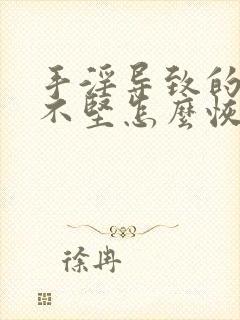 手淫导致的
不坚怎麼恢
徐冉